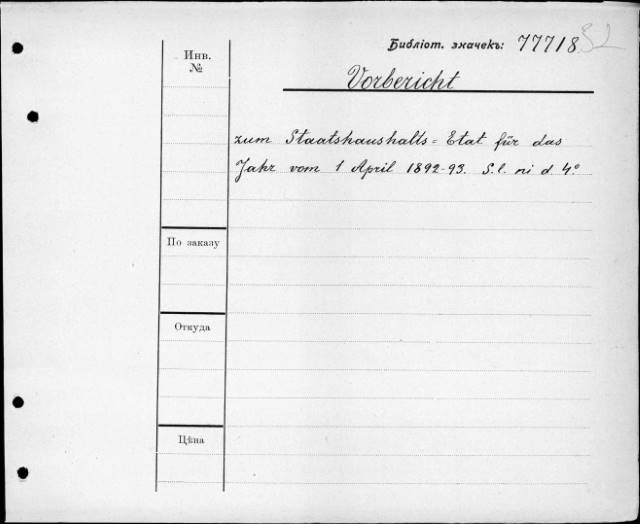 Библіот. значекъ: 77718
Инв. №
Vorbericht
zum Staatshaushalts = Etat für das
Jahr vom 1 April 1892-93. S.l. ni d. 4º
По заказу
Откуда
Цѣна